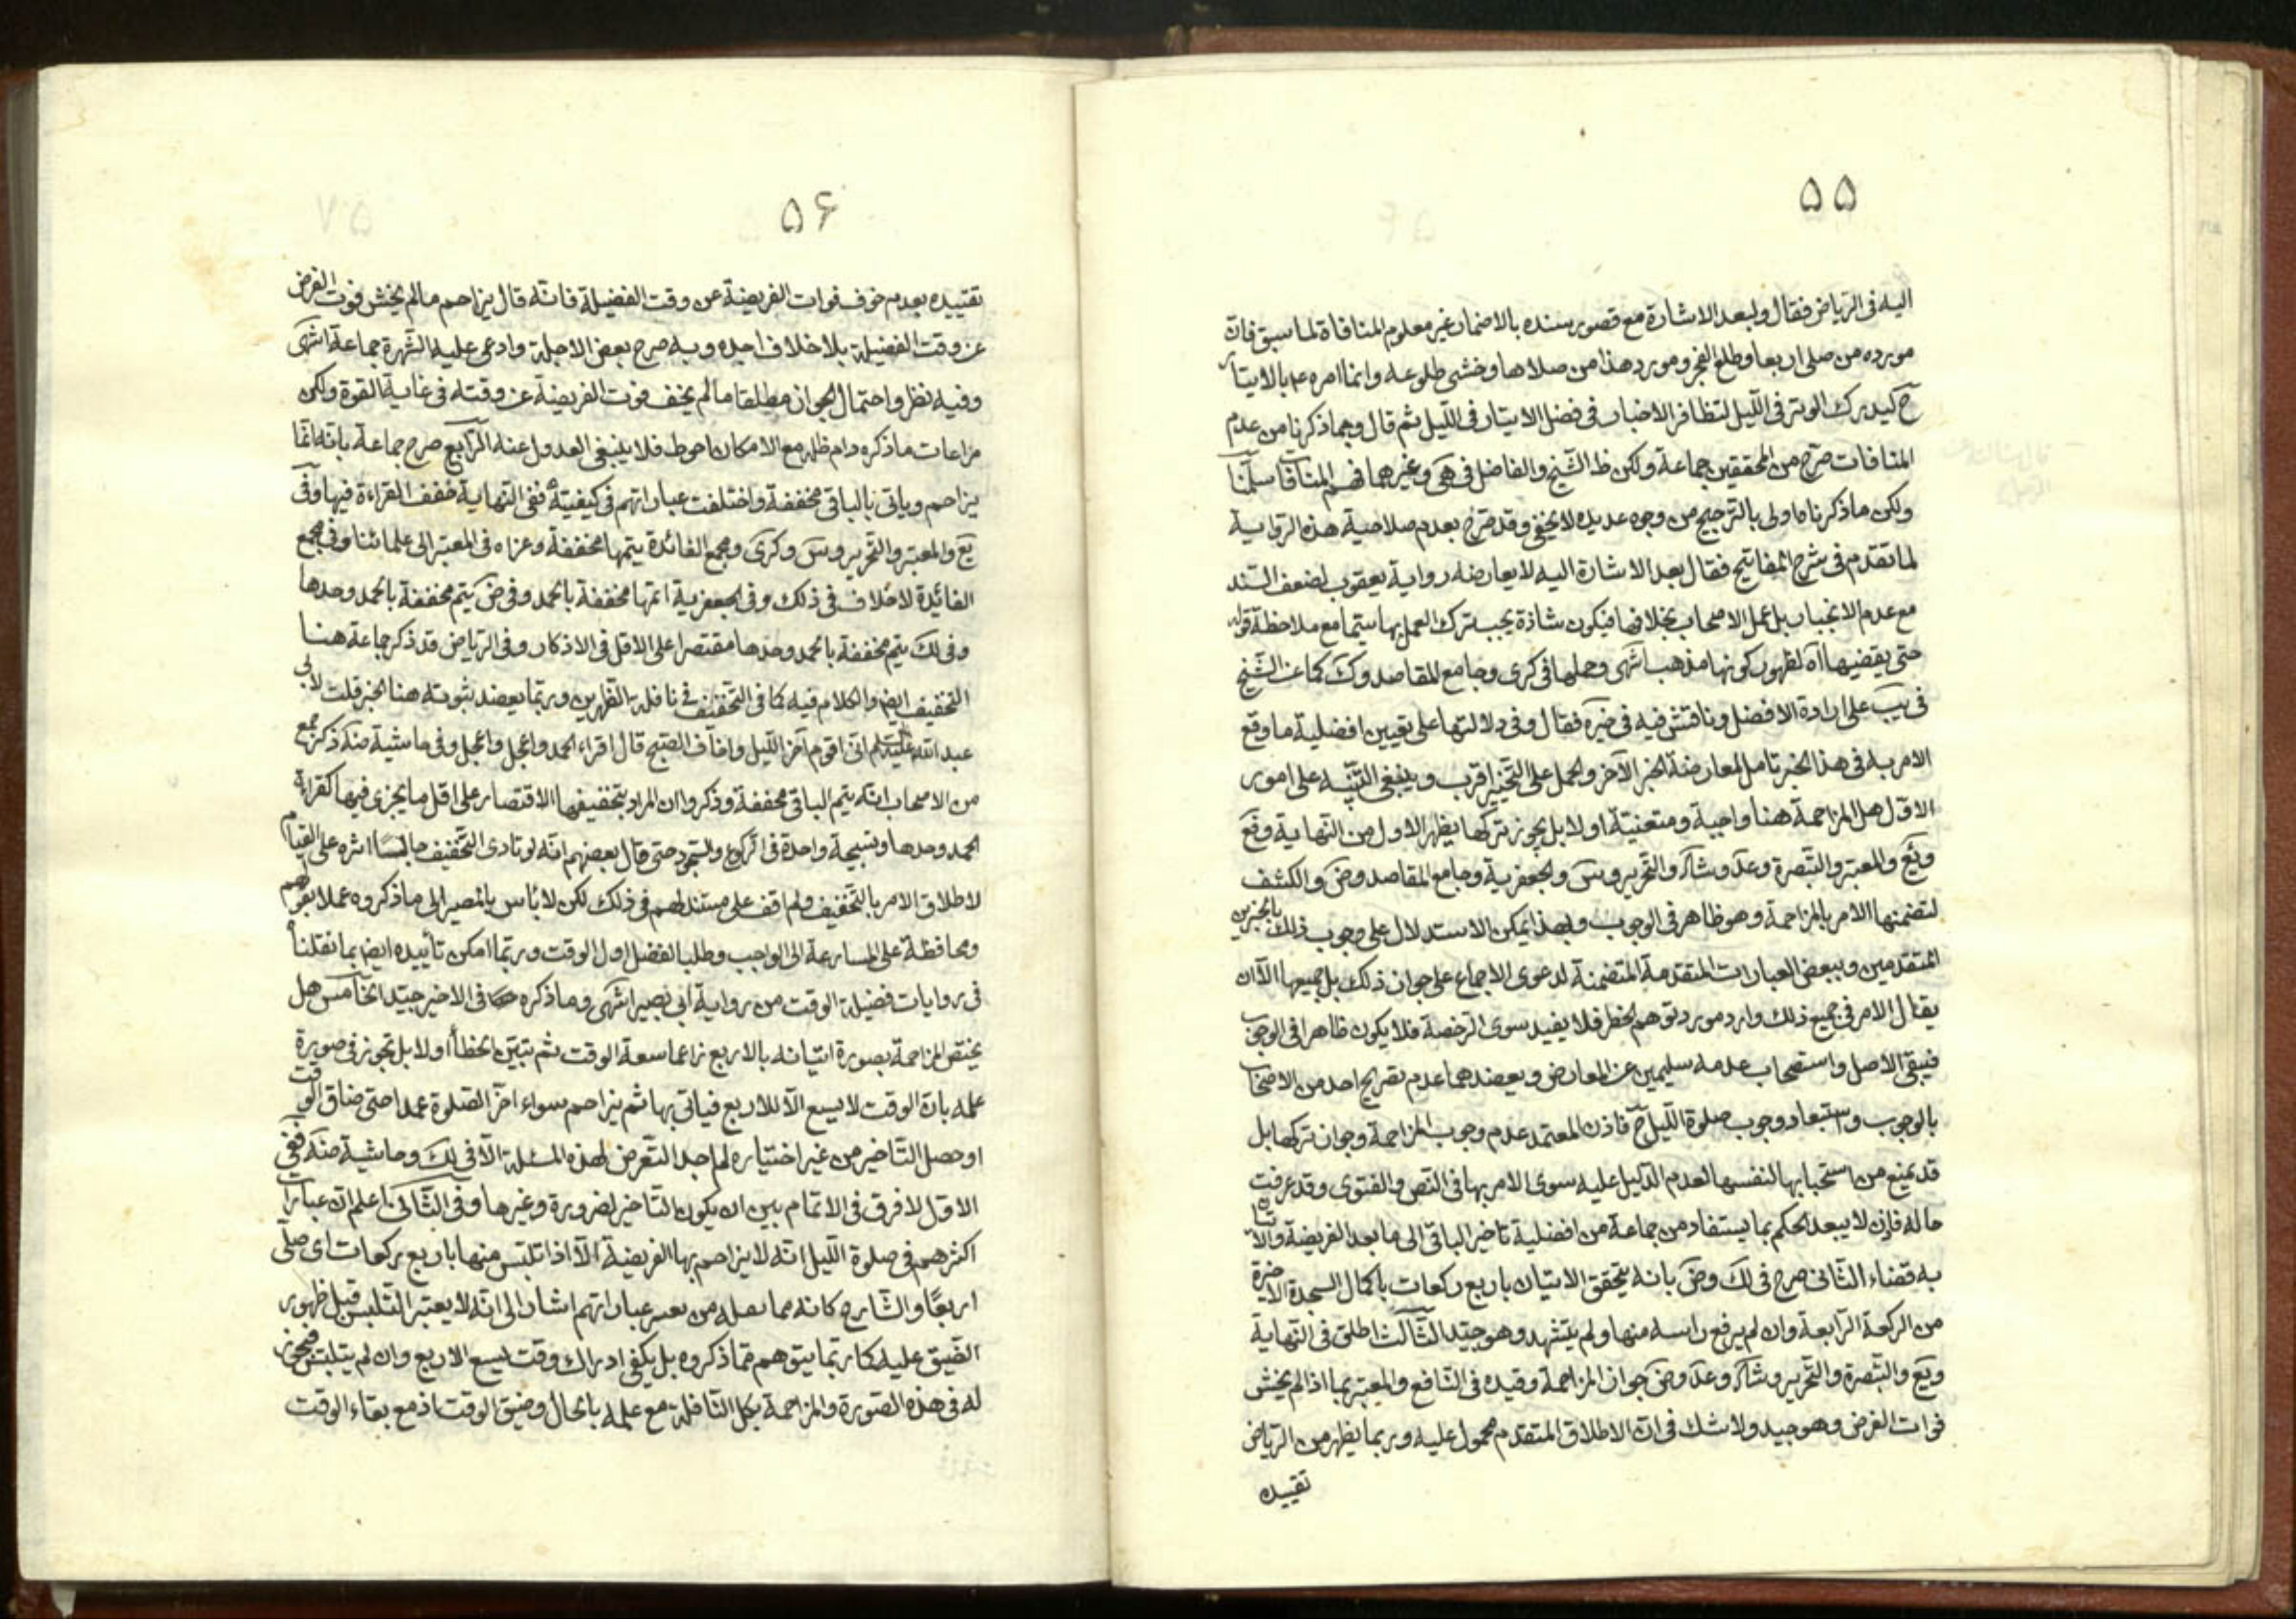 ۵۵
اليه فى الرياض فقال ولبعد الاشارة مع قصور سنده بالاضمار غير معلوم المنافاة لما سبق فان
مورده من صلى اربعا وطلع الفجر ومورد هذا من صلاها وخشى طلوعه وانما امره ع بالايتار
ح ليدرك الوتر فى الليل لتظافر الاخبار فى فضل الايتار فى الليل ثم قال وبما ذكرنا من عدم
المنافات صرح من المحققين جماعة ولكن ظ الشيخ والفاضل فى هى وغيرهما فهم المنافات سلمنا
ولكن ما ذكرناه اولى بالترجيح من وجوه عديدة لا يخفى وقد صرح بعدم صلاحية هذه الرواية
لما تقدم فى شرح المفاتيح فقال بعد الاشارة اليه لا يعارضه رواية يعقوب لضعف السند
مع عدم الانجبار بل عمل الاصحاب بخلافها فيكون شاذة يجب ترك العمل بها سيما مع ملاحظة قوله
حتى يقضيها اه لظهور كونها مذهب انتهى وحملها فى كرى وجامع المقاصد وك كما عن الشيخ
فى يب على ارادة الافضل وناقش فيه فى خيره فقال وفى دلالتها على تعيين افضلية ما وقع
الامر به فى هذا الخبر تامل لمعارضة الخبر الآخر والحمل على التخيير اقرب وينبغى التنبيه على امور
الاول هل المزاحمة هنا واجبة ومتعينة او لا بل يجوز تركها يظهر الاول من النهاية وفع
ويع والمعتبر والتبصرة وعد وشاد والتحرير وس والجعفرية وجامع المقاصد وض والكشف
لتضمنها الامر بالمزاحمة وهو ظاهر فى الوجوب ولهذا يمكن الاستدلال على وجوب ذلك بالخبرين
المتقدمين وببعض العبارات المتقدمة المتضمنة لدعوى الاجماع على جواز ذلك بل جميعها الا ان
يقال الامر فى جميع ذلك وارد مورد توهم الحظر فلا يفيد سوى الرخصة فلا يكون ظاهرا فى الوجوب
فيبقى الاصل واستصحاب عدمه سليمين عن المعارض ويعضدهما عدم تصريح احد من الاصحاب
بالوجوب واستبعاد وجوب صلوة الليل ح فاذن المعتمد عدم وجوب المزاحمة وجواز تركها بل
قد يمنع من استحبابها لنفسها لعدم الدليل عليه سوى الامر بها فى النص والفتوى وقد عرفت
حاله فاذن لا يبعد الحكم بما يستفاد من جماعة من افضلية تاخير الباقى الى ما بعد الفريضة والاتيان
به قضاء الثانى صرح فى لك وض بانه يتحقق الاتيان باربع ركعات باكمال السجدة الاخيرة
من الركعة الرابعة وان لم يرفع راسه منها ولم يتشهد وهو جيد الثالث اطلق فى النهاية
ويع والتبصرة والتحرير وشاد وعد وض جواز المزاحمة وقيده فى النافع والمعتبر بما اذا لم يخش
فوات الفرض وهو جيد ولا شك فى ان الاطلاق المتقدم محمول عليه وربما يظهر من الرياض
تقييده
۵۶
تقييده بعدم خوف فوات الفريضة عن وقت الفضيلة فانه قال يزاحم ما لم يخش فوت الفرض
عن وقت الفضيلة بلا خلاف اجده وبه صرح بعض الاجلة وادعى عليه الشهرة جماعة انتهى
وفيه نظر واحتمال الجواز مطلقا ما لم يخف فوت الفريضة عن وقته فى غاية القوة ولكن
مراعات ما ذكره دام ظله مع الامكان احوط فلا ينبغى العدول عنه الرابع صرح جماعة بانه انما
يزاحم وياتى بالباقى مخففة واختلفت عباراتهم فى كيفيته ففى النهاية خفف القراءة فيها وفى
يع والمعتبر والتحرير وس وكرى ومجمع الفائدة يتمها مخففة وعزاه فى المعتبر الى علمائنا وفى مجمع
الفائدة لا خلاف فى ذلك وفى الجعفرية اتمها مخففة بالحمد وفى ض يتم مخففة بالحمد وحدها
وفى لك يتم مخففة بالحمد وحدها مقتصرا على الاقل فى الاذكار وفى الرياض قد ذكر جماعة هنا
التخفيف ايضا والكلام فيه كما فى التخفيف فى نافلة الظهرين وربما يعضد بثبوته هنا الخبر قلت لابى
عبد الله عليه السلم انى اقوم آخر الليل واخاف الصبح قال اقراء الحمد واعجل واعجل وفى حاشية منه ذكر جمع
من الاصحاب انه يتم الباقى مخففة وذكروا ان المراد بتخفيفها الاقتصار على اقل ما يجزى فيها كقراءة
الحمد وحدها وتسبيحة واحدة فى الركوع والسجود حتى قال بعضهم انه لو تادى التخفيف جالسا اثره على القيام
لاطلاق الامر بالتخفيف ولم اقف على مستند لهم فى ذلك لكن لا باس بالمصير الى ما ذكروه عملا بقولهم
ومحافظة على المسارعة الى الواجب وطلبا لفضل اول الوقت وربما امكن تأييده ايضا بما نقلنا
فى روايات فضيلة الوقت من رواية ابى بصير انتهى وما ذكره فى الاخير جيد الخامس هل
يختص المزاحمة بصورة اتيانه بالاربع زاعما سعة الوقت ثم يتبين الخطأ او لا بل تجوز فى صورة
علمه بان الوقت لا يسع الا للاربع فياتى بها ثم يزاحم سواء اخر الصلوة عمدا حتى ضاق الوقت
او حصل التاخير من غير اختياره لم اجد التعرض لهذه المسئلة الا فى لك وحاشية منه ففى
الاول لا فرق فى الاتمام بين ان يكون التاخير لضرورة وغيرها وفى الثانى اعلم ان عبارات
اكثرهم فى صلوة الليل انه لا يزاحم بها الفريضة الا اذا تلبس منها باربع ركعات اى صلى
اربعا والشارح كانه مما من عباراتهم اشار الى انه لا يعتبر التلبس قبل ظهور
الضيق عليه كما ربما يتوهم مما ذكروه بل يكفى ادراك وقت ليسع الاربع وان لم يتلبس فيجوز
له فى هذه الصورة والمزاحمة بكل النافلة مع علمه بالحال وضيق الوقت اذ مع بقاء الوقت